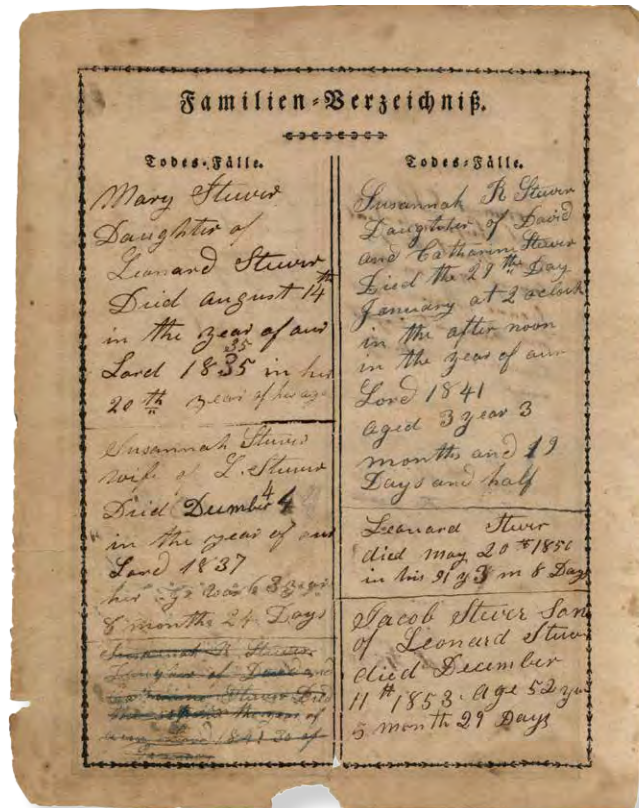 Familien-Verzeichniß.
Todes-Fälle.
Mary Stuver
Daughter of
Leonard Stuver
Died august 14th
in the year of our
35
Lord 1835 in her
20th year of her age
Susannah Stuver
wife of L. Stuver
4
Died Dumber 4
in the year of our
Lord 1837
her age was 63 year
8 months 24 Days
Susannah R Stuver
Daughter of David and
Catharine Stuver Died
the year of
our Lord 1841
Todes-Fälle.
Susannah R Stuver
Daughter of David
and Catharine Stuver
Died the 29th Day
January at 2 oclock
in the after noon
in the year of our
Lord 1841
aged 3 year 3
months and 19
Days and half
Leonard Stuver
died may 20th 1850
in his 91 y 3 m 8 Days
Jacob Stuver Son
of Leonard Stuver
died December
11th 1853. Age 52 ye
5 month 29 Days